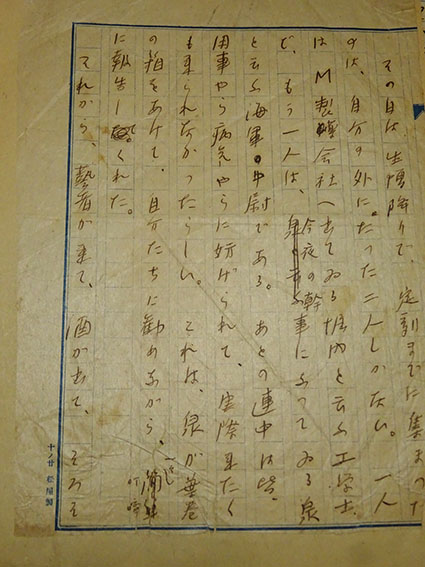 その日は、生憎降りで、定刻までに集まった
のは、自分の外に、たった二人しかない。一人
はM製鐵会社へ出てゐる堀内と云ふ工学士
で、もう一人は、今夜の幹事になつてゐる泉
と云ふ海軍の中尉である。あとの連中は皆、
用事やら病気やらに妨げられて、実際来たく
も来られなかつたらしい。これは、泉が葉巻
の指をあげて、自分たちに勧めながら、
に報告してくれた。
それから、藝者が来て、酒が出て、そろそ
十ノ廿 松屋製